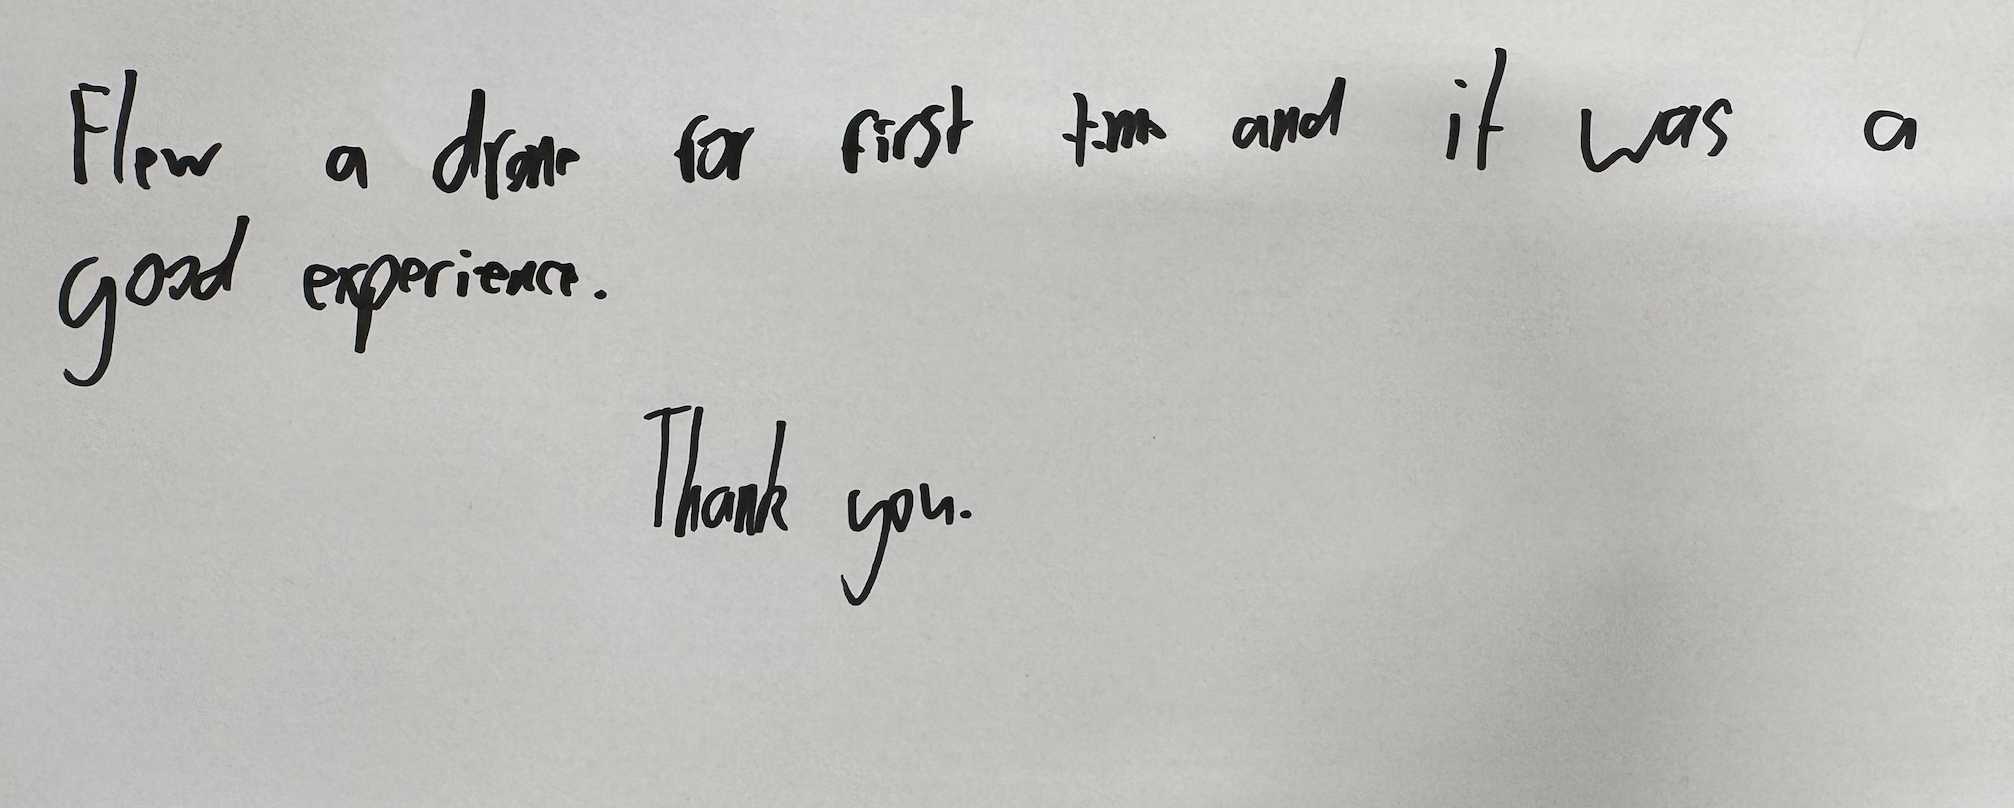 Flew a drone for first time and it was a
good experience.
Thank you.